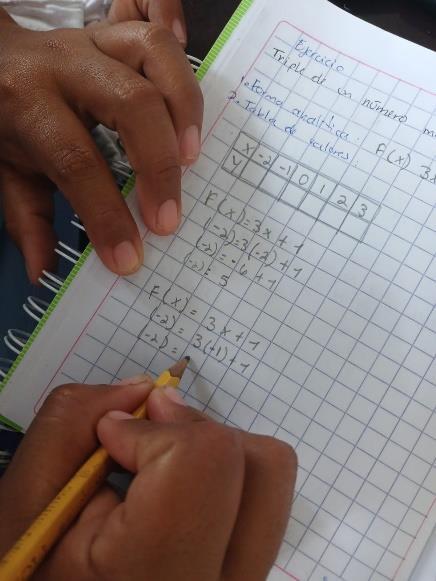 Ejercicio
Triple de un número m
1. Forma analítica: F(x) 3x
2. Tabla de valores:
X -2 -1 0 1 2 3
Y
F(x)=3x+1
(-2)=3(-2)+1
(-2)=-6+1
(-2)=5
F(x)= 3x+1
(-2)= 3(-1)+1
(-2)=